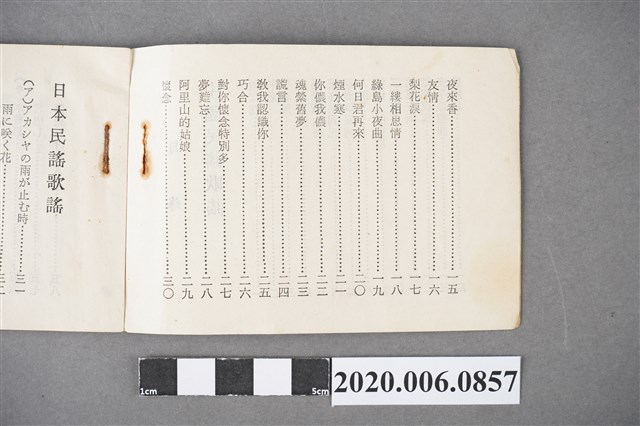 夜來香……一五
友情……一六
梨花淚……一七
一縷相思情……一八
綠島小夜曲……一九
何日君再來……二〇
煙水寒……二一
你儂我儂……二二
魂縈舊夢……二三
謊言……二四
敎我認識你……二五
巧合……二六
對你懷念特別多……二七
夢難忘……二八
阿里山的姑娘……二九
懷念……三〇
日本民謠歌謠
(ア)アカシヤの雨が止む時……三一
雨に咲く花……三二
1cm 5cm
2020.006.0857